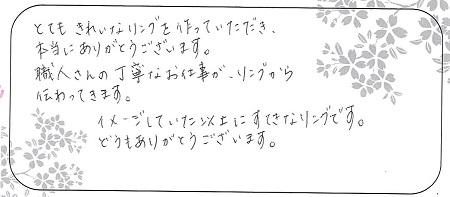 とても きれいなリングを作っていただき、
本当にありがとうございます。
職人さんの丁寧なお仕事が、リングから
伝わってきます。
イメージしていた以上にすてきなリングです。
どうもありがとうございます。